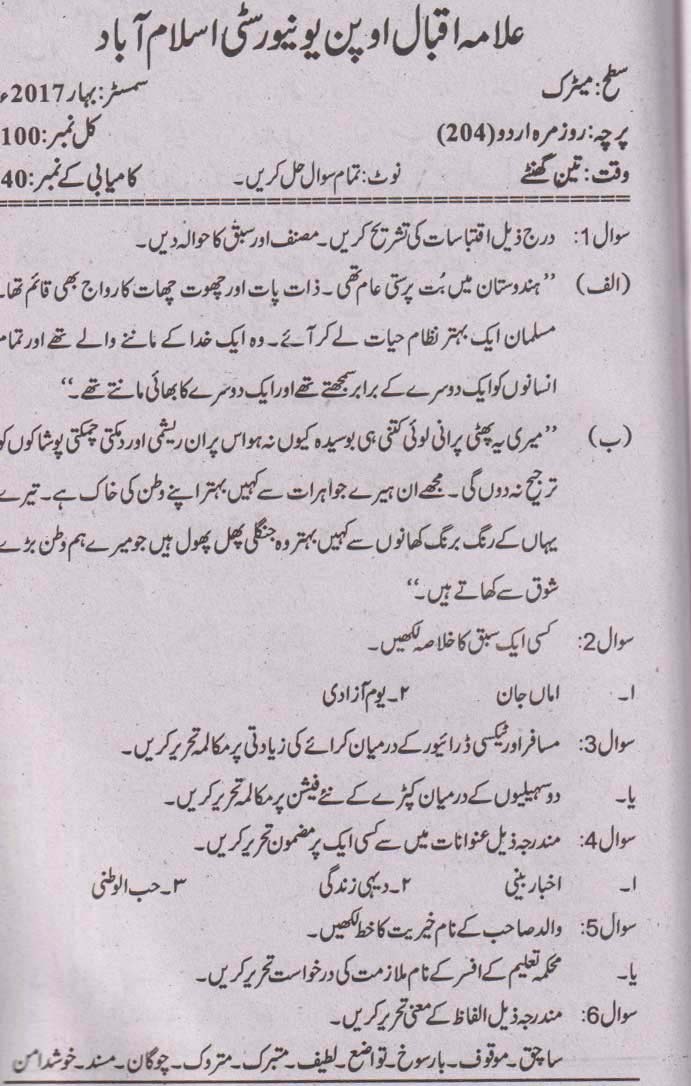 علامہ اقبال اوپن یونیورسٹی اسلام آباد
سطح: میٹرک سمسٹر: بہار 2017ء
پرچہ: روزمرہ اردو (204) کل نمبر: 100
وقت: تین گھنٹے نوٹ: تمام سوال حل کریں۔ کامیابی کے نمبر: 40
سوال 1: درج ذیل اقتباسات کی تشریح کریں۔ مصنف اور سبق کا حوالہ دیں۔
(الف) ’’ہندوستان میں بُت پرستی عام تھی۔ ذات پات اور چھوت چھات کا رواج بھی قائم تھا۔
مسلمان ایک بہتر نظام حیات لے کر آئے۔ وہ ایک خدا کے ماننے والے تھے اور تمام
انسانوں کو ایک دوسرے کے برابر سمجھتے تھے اور ایک دوسرے کا بھائی مانتے تھے۔‘‘
(ب) ’’میری یہ پھٹی پرانی لوئی کتنی ہی بوسیدہ کیوں نہ ہو اس پر ان ریشمی اور دمکتی چمکتی پوشاکوں کو
ترجیح نہ دوں گی۔ مجھے ان ہیرے جواہرات سے کہیں بہتر اپنے وطن کی خاک ہے۔ تیرے
یہاں کے رنگ برنگ کھانوں سے کہیں بہتر وہ جنگلی پھل پھول ہیں جو میرے ہم وطن بڑے
شوق سے کھاتے ہیں۔‘‘
سوال 2: کسی ایک سبق کا خلاصہ لکھیں۔
۱۔ اماں جان ۲۔ یوم آزادی
سوال 3: مسافر اور ٹیکسی ڈرائیور کے درمیان کرائے کی زیادتی پر مکالمہ تحریر کریں۔
یا۔ دو سہیلیوں کے درمیان کپڑے کے نئے فیشن پر مکالمہ تحریر کریں۔
سوال 4: مندرجہ ذیل عنوانات میں سے کسی ایک پر مضمون تحریر کریں۔
۱۔ اخبار بینی ۲۔ دیہی زندگی ۳۔ حب الوطنی
سوال 5: والد صاحب کے نام خیریت کا خط لکھیں۔
یا۔ محکمہ تعلیم کے افسر کے نام ملازمت کی درخواست تحریر کریں۔
سوال 6: مندرجہ ذیل الفاظ کے معنی تحریر کریں۔
ساچق۔ موقوف۔ بارسوخ۔ تواضع۔ لطیف۔ متبرک۔ متروک۔ چوگان۔ مسند۔ خوشدامن